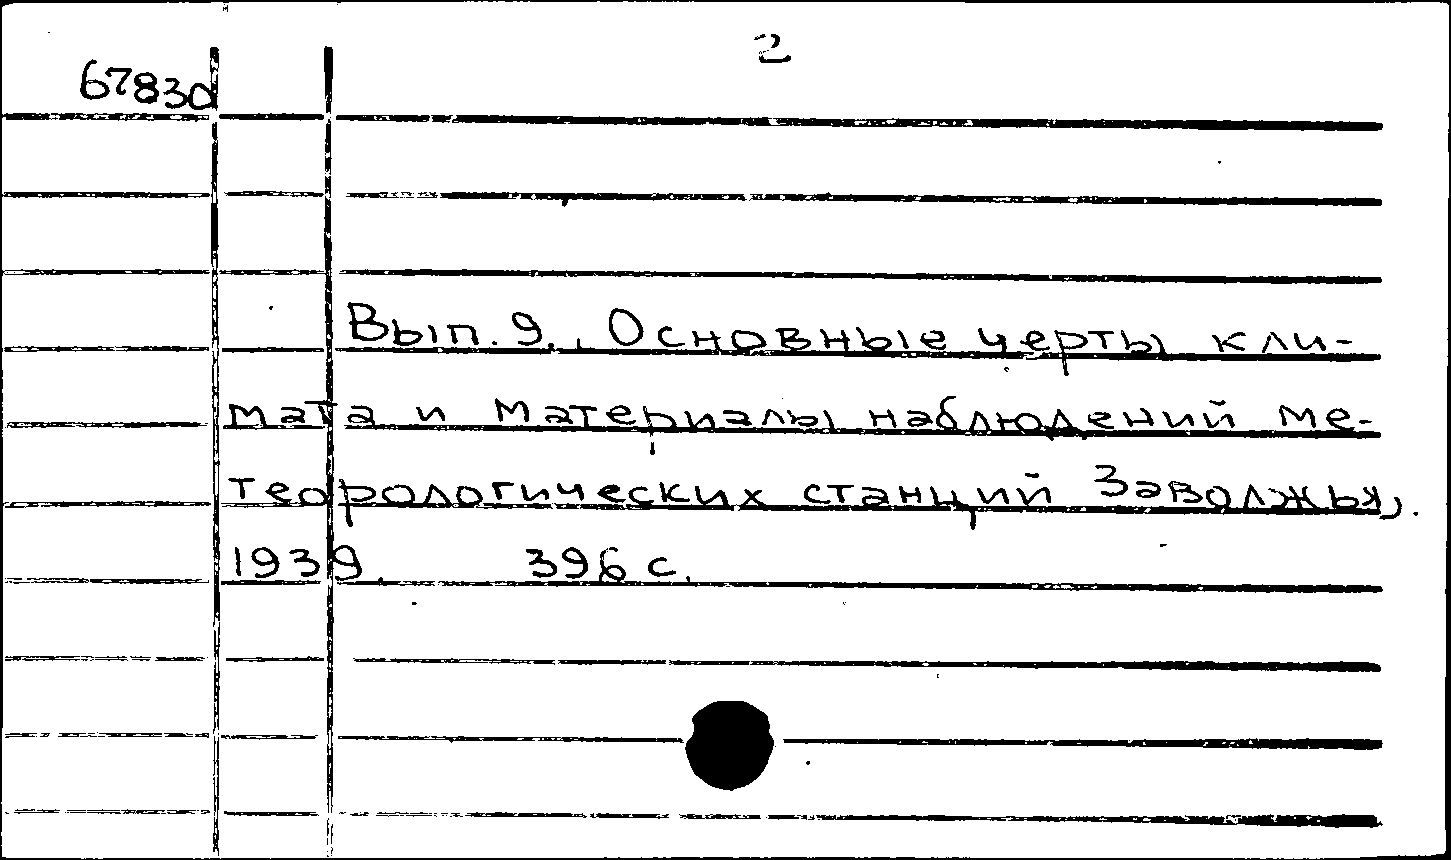 2
67830
Вып. 9. Основные черты кли-
мата и материалы наблюдений ме-
теорологических станций Заволжья,.
1939. 396 с.